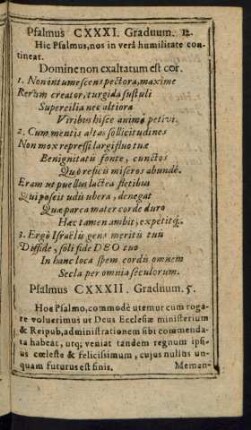 Psalmus CXXXI. Graduum. 12.
Hic Psalmus, nos in verâ humilitate con-
tineat.
Domine non exaltatum est cor.
1. Non intumescens pectora, maxime
Rerum creator, turgida sustuli
Supercilia nec altiora
Viribus hisce animo petivi.
2. Cum mentis altas sollicitudines
Non mox repressi largifluo tuæ
Benignitatis fonte, cunctos
Quo reficis miseros abundè.
Eram ut puellus lactea fletibus
Qui poscit udis ubera, denegat
Quæ parca mater corde duro
Hæc tamen ambit, expetitq;
3. Ergò Israëlis gens meritis tuis
Diffide, soli fide DEO tuo
In hanc loca spem cordis omnem
Secla per omnia seculorum.
Psalmus CXXXII. Graduum. 5.
Hoc Psalmo, commodè utemur cum roga-
re voluerimus ut Deus Ecclesiæ ministerium
& Reipub, administrationem sibi commenda-
ta habeat, utq; veniat tandem regnum ip-
us cœleste & felicissimum, cujus nullus un-
quam futurus est finis.
Memen-